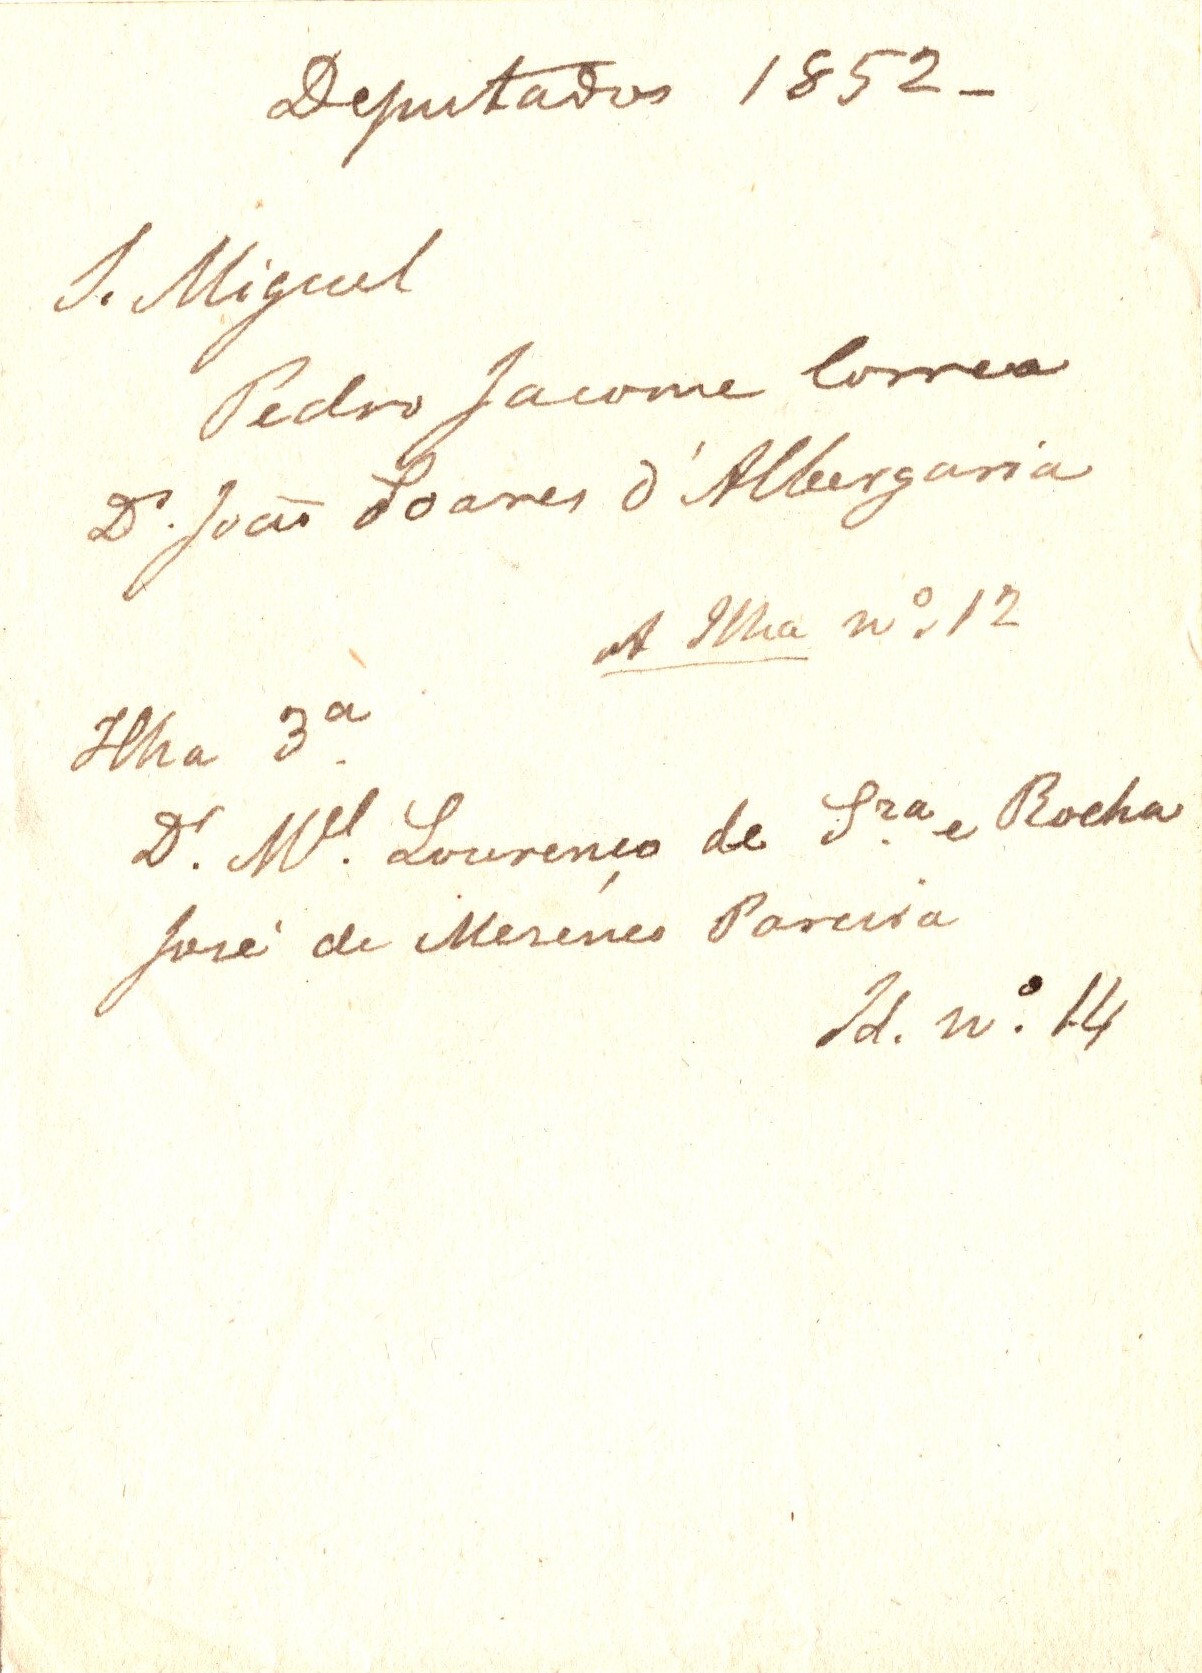 Deputados 1852 -
S. Miguel
Pedro Jacome Correa
Dr. João Soares d'Albergaria
A Ilha nº. 12
Ilha 3ª.
Dr. Mel. Lourenço de Sza. e Rocha
José de Menezes Parreira
Id. nº. 14